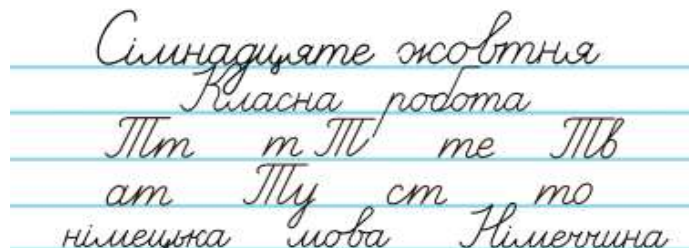 Сімнадцяте жовтня
Класна робота
Тт т Т те Тв
ат Ту ст то
німецька мова Німеччина